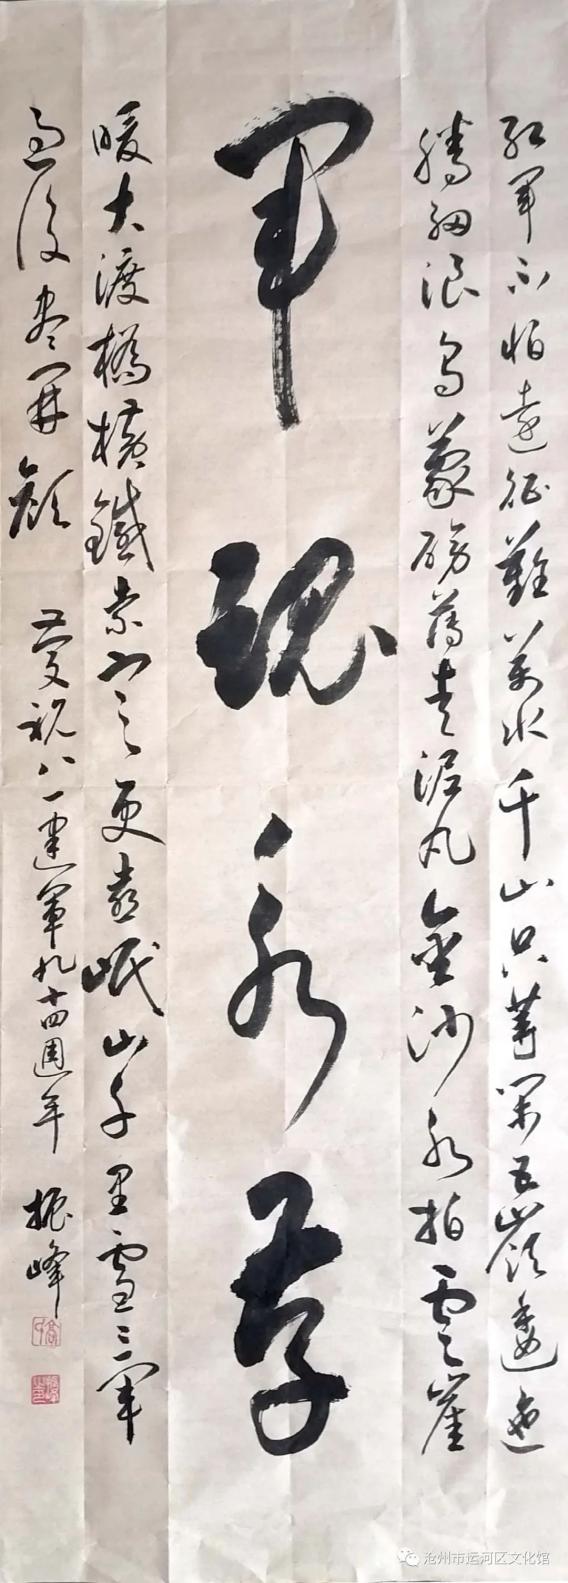 红軍不怕遠征難萬水千山只等閑五嶺逶迤
騰細浪烏蒙磅礴走泥丸金沙水拍雲崖
軍魂永存
暖大渡橋橫鐵索寒更喜岷山千里雪三軍
過後盡開顏 慶祝八一建軍九十四週年 振峰
沧州市运河区文化馆